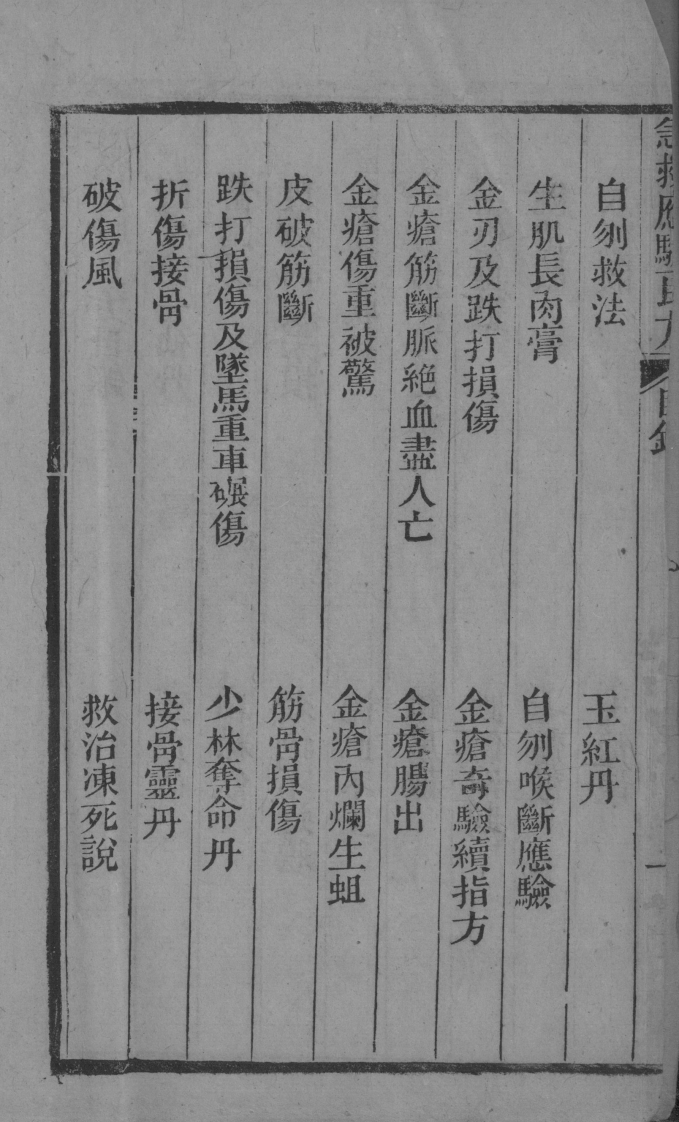 急救應驗良方 目錄 一
自刎救法 玉紅丹
生肌長肉膏 自刎喉斷應驗
金刃及跌打損傷 金瘡奇驗續指方
金瘡筋斷脈絕血盡人亡 金瘡腸出
金瘡傷重被驚 金瘡內爛生蛆
皮破筋斷 筋骨損傷
跌打損傷及墜馬重車碾傷 少林奪命丹
折傷接骨 接骨靈丹
破傷風 救治凍死說